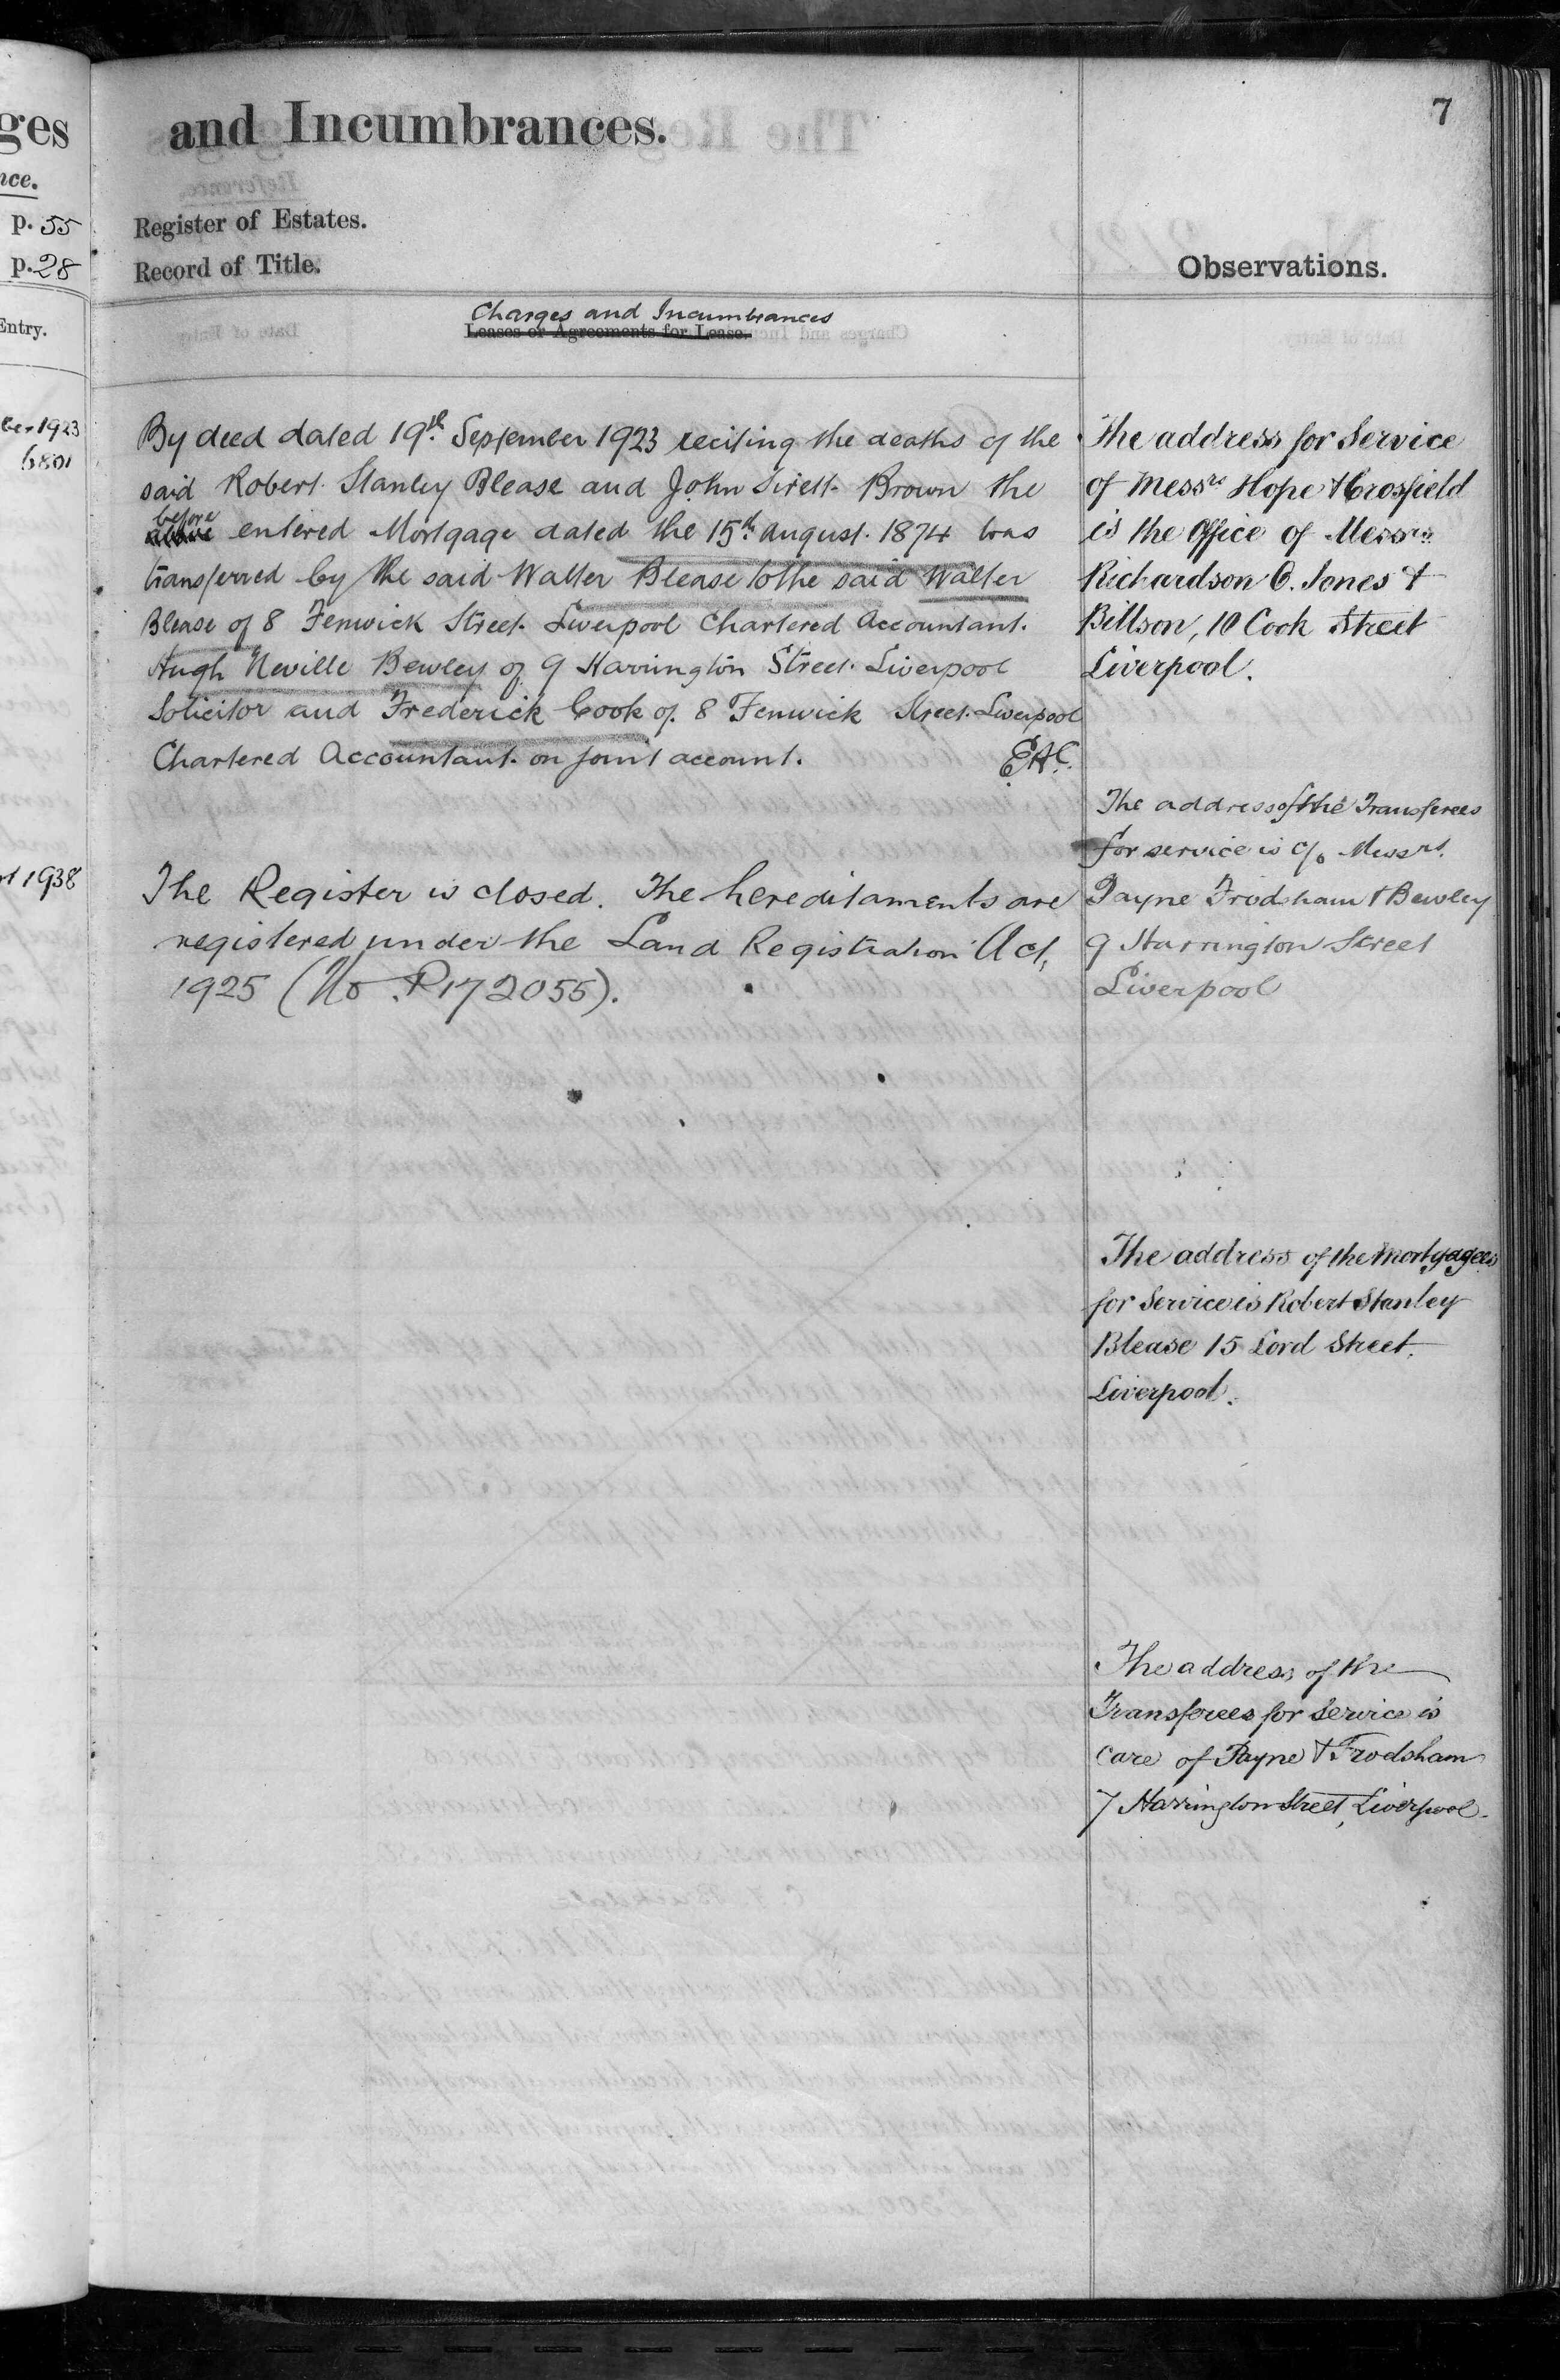 ges
nce.
p. 55
p. 28
Entry.
ber 1923
6801
1938
and Incumbrances.
7
Register of Estates.
Record of Title.
Observations.
Charges and Incumbrances
Leases or Agreements for Lease.
By deed dated 19th September 1923 reciting the deaths of the
said Robert Stanley Blease and John Sirett Brown the
before
above entered Mortgage dated the 15th August 1874 was
transferred by the said Walter Blease to the said Walter
Blease of 8 Fenwick Street Liverpool Chartered Accountant.
Hugh Neville Bewley of 9 Harrington Street Liverpool
Solicitor and Frederick Cook of 8 Fenwick Street Liverpool
Chartered Accountant on joint account.
E.A.C.
The Register is closed. The hereditaments are
registered under the Land Registration Act,
1925 (No. P172055).
The address for Service
of Messrs Hope & Crosfield
is the Office of Messrs
Richardson O. Jones &
Billson, 10 Cook Street
Liverpool.
The address of the Transferees
for service is c/o Messrs.
Payne Frodsham & Bewley
9 Harrington Street
Liverpool
The address of the Mortgagees
for Service is Robert Stanley
Blease 15 Lord Street,
Liverpool.
The address of the
Transferees for Service is
care of Payne & Frodsham
7 Harrington Street, Liverpool.